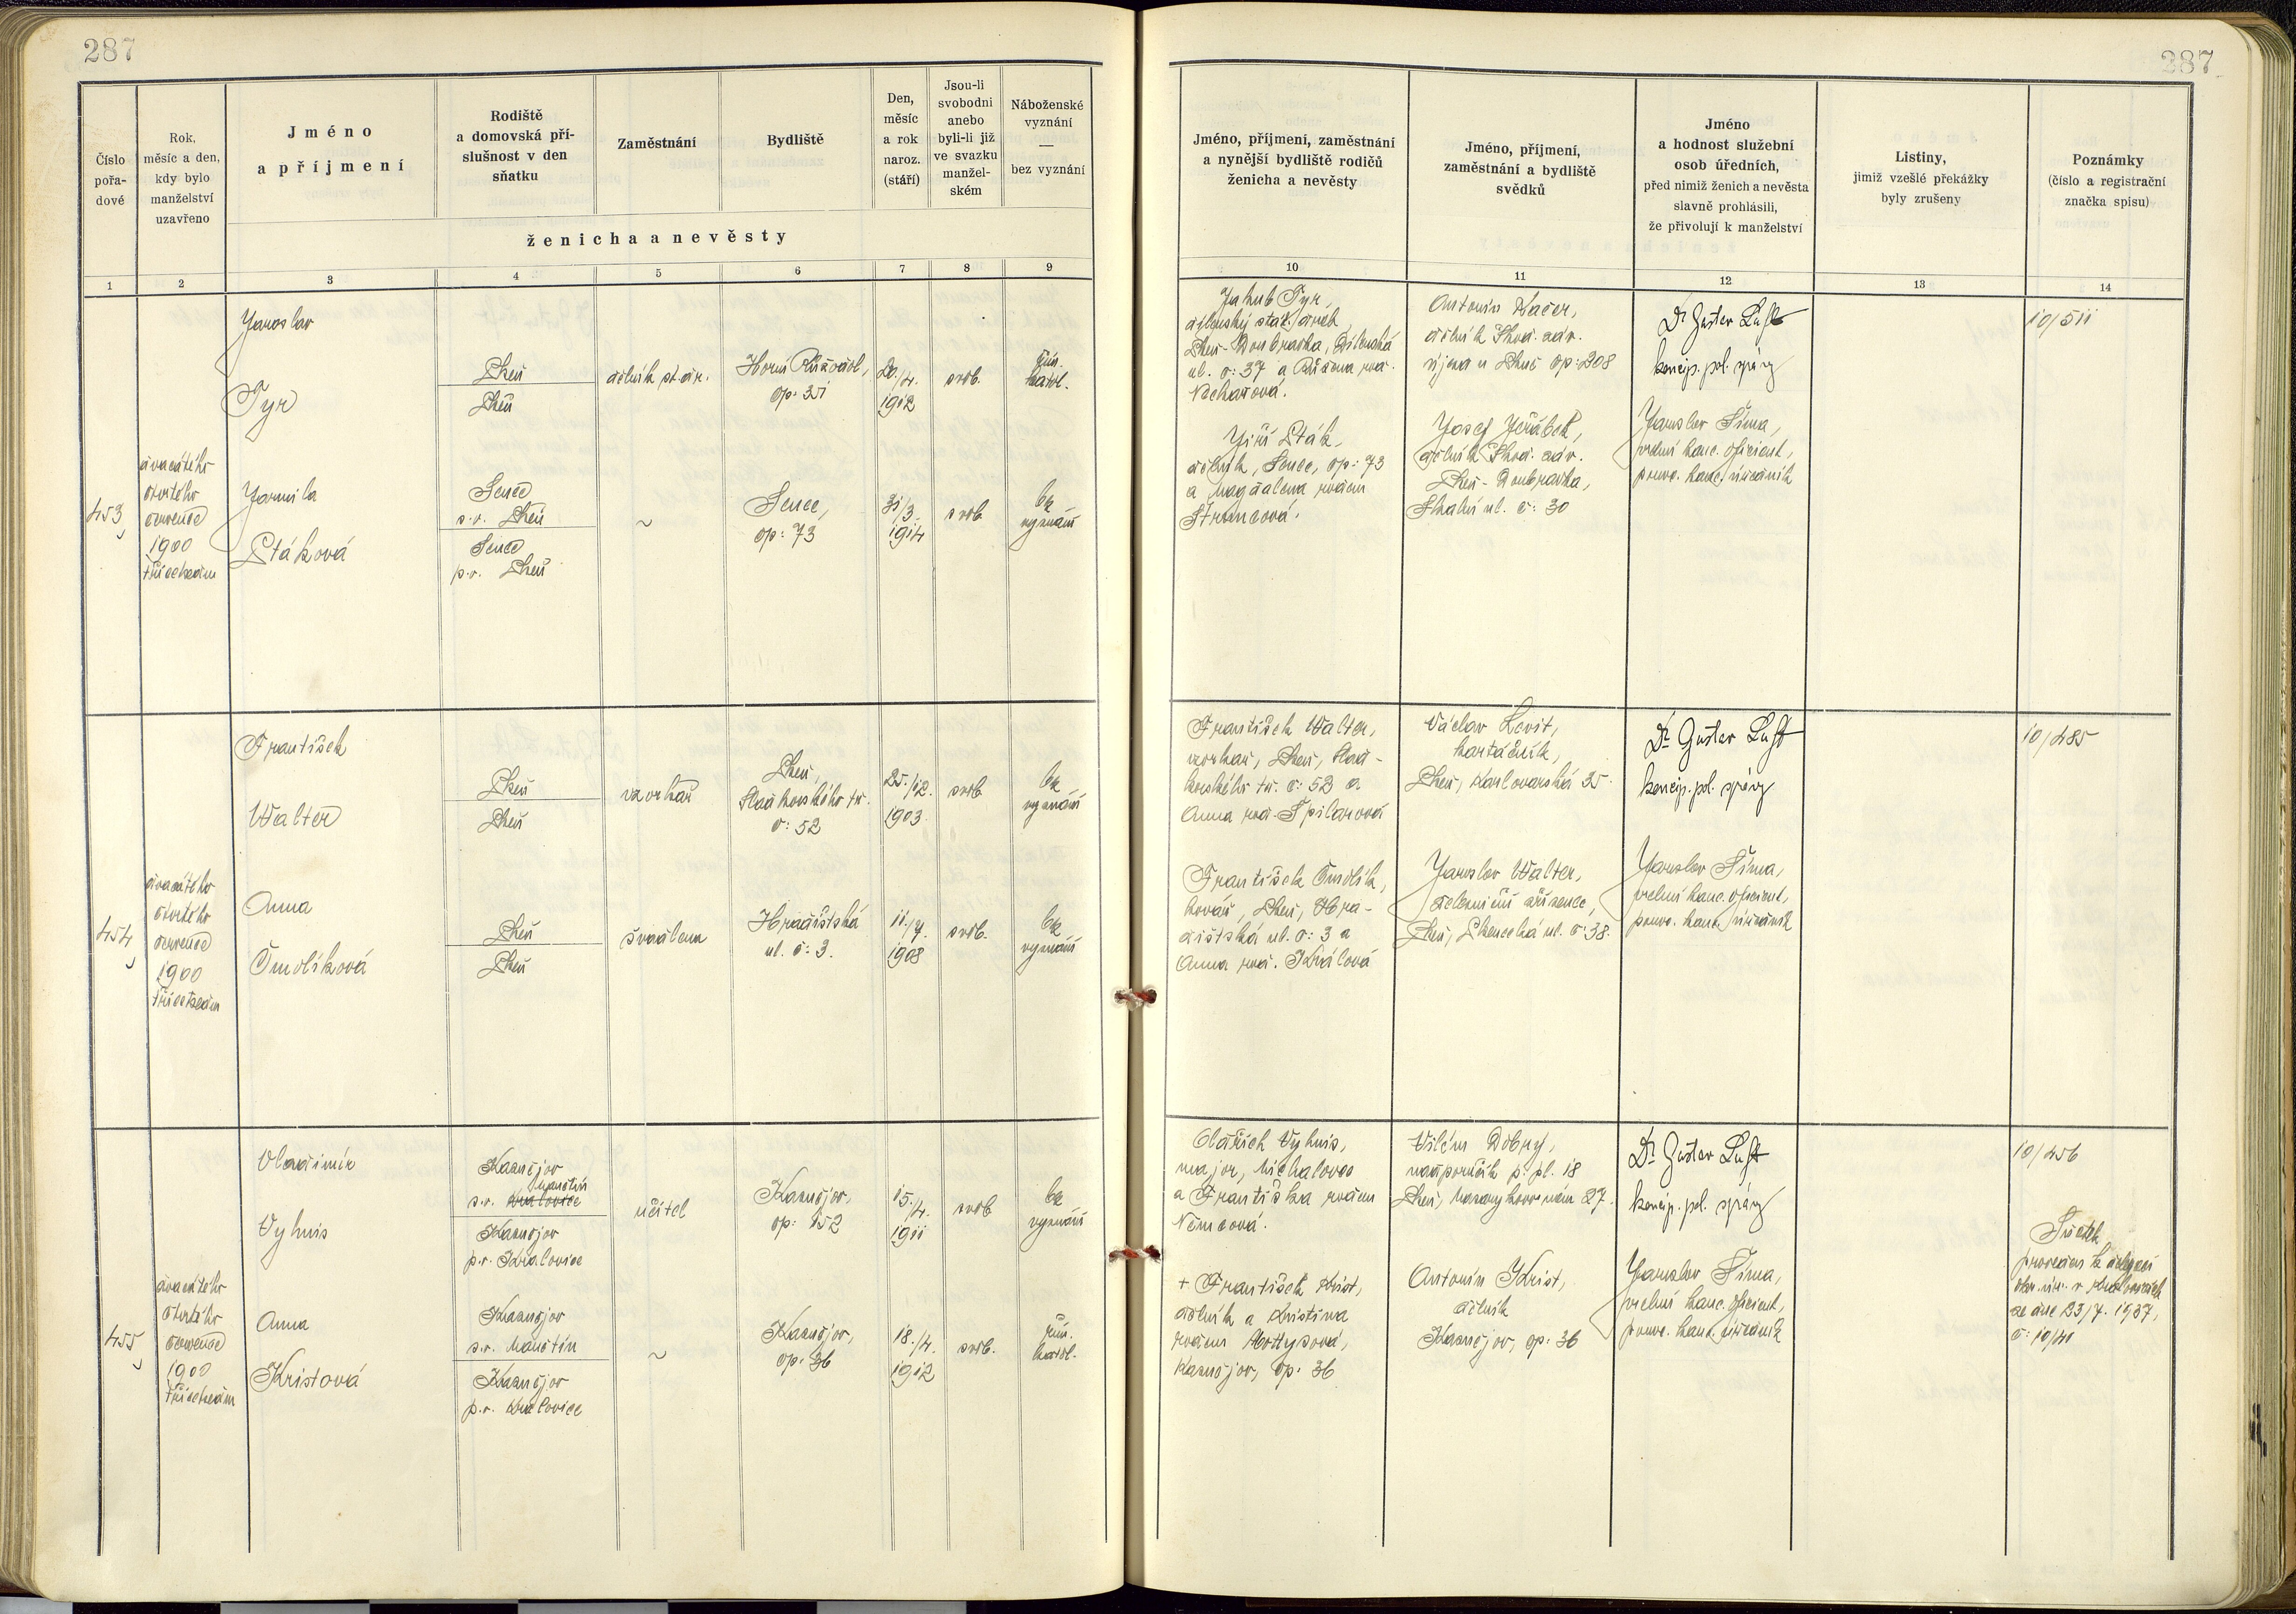 287
287
Číslo
pořa-
dové
Rok,
měsíc a den,
kdy bylo
manželství
uzavřeno
Jméno
a příjmení
Rodiště
a domovská pří-
slušnost v den
sňatku
Zaměstnání
Bydliště
Den,
měsíc
a rok
naroz.
(stáří)
Jsou-li
svobodni
anebo
byli-li již
ve svazku
manžel-
ském
Náboženské
vyznání
—
bez vyznání
ženicha a nevěsty
Jméno, příjmení, zaměstnání
a nynější bydliště rodičů
ženicha a nevěsty
Jméno, příjmení,
zaměstnání a bydliště
svědků
Jméno
a hodnost služební
osob úředních,
před nimiž ženich a nevěsta
slavně prohlásili,
že přivolují k manželství
Listiny,
jimiž vzešlé překážky
byly zrušeny
Poznámky
(číslo a registrační
značka spisu)
1 2 3 4 5 6 7 8 9 10 11 12 13 14
453
dvacátého
čtvrtého
července
1900
třicetsedm
Jaroslav
Týr
Plzeň
Plzeň
dělník st. dr.
op: 351
20./4.
1912
svob.
řím.
katol.
Jarmila
Ptáková
Senec
s.o. Plzeň
Senec
p.o. Plzeň
~
Senec,
op: 73
31/3.
1914
svob.
bez
vyznání
Jakub Týr,
Plzeň-Doubravka, Dílenská
ul. č: 37 a Růžena roz.
Jiří Pták,
dělník, Senec, op: 73
a Magdalena rozená
Štruncová.
dělník Škod. záv.
op: 208
Josef Jeřábek,
dělník Škod. záv.
Plzeň-Doubravka,
Skalní ul. č: 30
Dr Gustav Luft
koncip. pol. správy
Jaroslav Šíma,
vrchní kanc. oficient,
pover. kanc. úředník
10/511
454
dvacátého
čtvrtého
července
1900
třicetsedm
František
Walter
Plzeň
Plzeň
vzorkař
Plzeň,
č: 52
25./12.
1903.
svob
bez
vyznání
Anna
Čmolíková
Plzeň
Plzeň
švadlena
Hradištská
ul. č: 3.
11./7.
1908
svob.
bez
vyznání
František Walter,
vzorkař, Plzeň, Slad-
kovského tř. č: 52 a
Anna roz. Špilarová
František Čmolík,
kovář, Plzeň, Hra-
dištská ul. č: 3 a
Anna roz. Králová
Václav Levit,
kartáčník,
Plzeň, Karlovarská 25.
Jaroslav Walter,
železniční zřízenec,
Plzeň, Plzenecká ul. č: 38.
Dr Gustav Luft
koncip. pol. správy
Jaroslav Šíma,
vrchní kanc. oficient,
pover. kanc. úředník
10/485
455
dvacátého
čtvrtého
července
1900
třicetsedm
Vladimír
Vyhnis
Kaznějov
Manětín
s.o. Kralovice
Kaznějov
p.o. Kralovice
učitel
Kaznějov,
op: 152
15./4.
1911
svob
bez
vyznání
Anna
Kristová
Kaznějov
s.o. Manětín
Kaznějov
p.o. Kralovice
~
Kaznějov,
op: 36
18./4.
1912
svob.
řím.
katol.
Oldřich Vyhnis,
major, Michalovce
a Františka rozená
Němcová.
+ František Krist,
dělník a Kristina
rozená
Kaznějov, op: 36
Vilém Dobrý,
nadporučík p. pl. 18
Plzeň, Masarykovo nám 27.
Antonín Krist,
dělník
Kaznějov, op: 36
Dr Gustav Luft
koncip. pol. správy
Jaroslav Šíma,
vrchní kanc. oficient,
pover. kanc. úředník
10/456
Sňatek
proveden k delegaci
okr. úř. v Kralovicích
ze dne 23/7. 1937,
č: 10/40